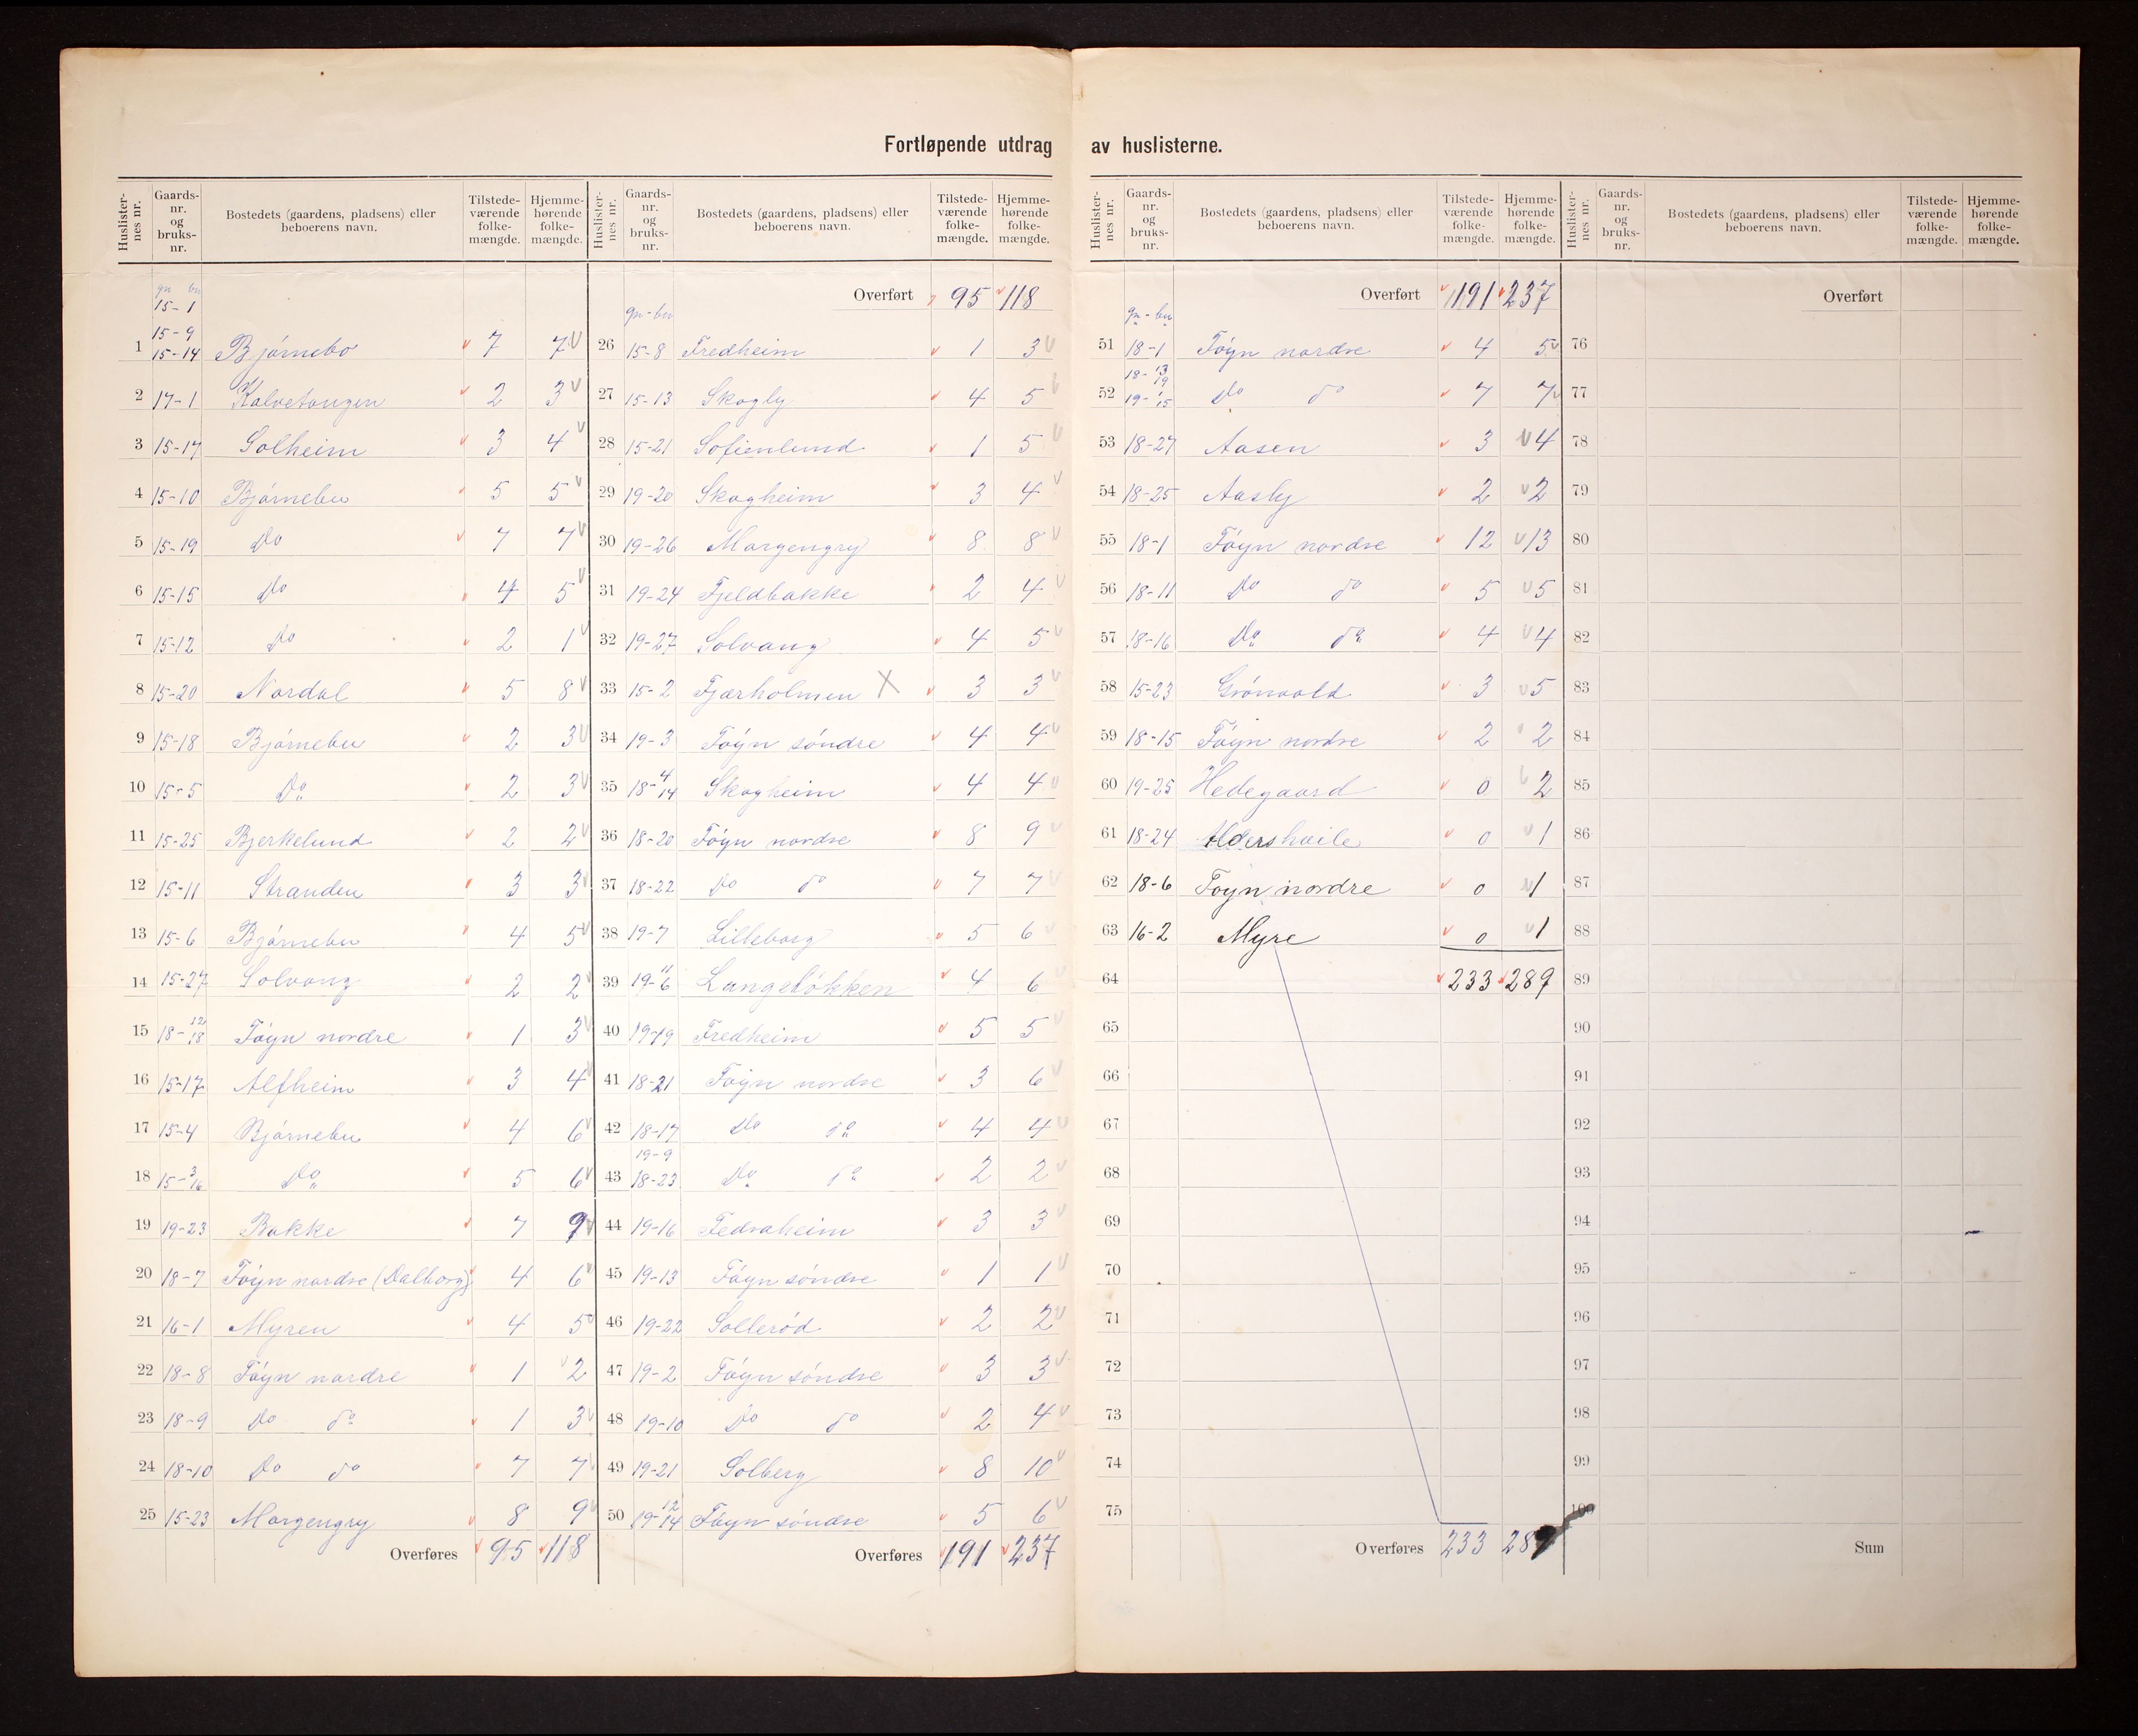 Fortløpende utdrag av huslisterne.
Huslisternes nr. Gaardsnr. og bruksnr. Bostedets (gaardens, pladsens) eller beboerens navn. Tilstedeværende folkemængde. Hjemmehørende folkemængde.
gn bn
15-1
15-9
1 15-14 Bjørnebo 7 7
2 17-1 Kalvetangen 2 3
3 15-17 Solheim 3 4
4 15-10 Bjørnebu 5 5
5 15-19 Do 7 7
6 15-15 Do 4 5
7 15-12 Do 2 1
8 15-20 Nordal 5 8
9 15-18 Bjørnebu 2 3
10 15-5 Do 2 3
11 15-25 Bjerkelund 2 2
12 15-11 Stranden 3 3
13 15-6 Bjørnebu 4 5
14 15-27 Solvang 2 2
15 18-12/18 Føyn nordre 1 3
16 15-17 Alfheim 3 4
17 15-4 Bjørnebu 4 6
18 15-3/16 Do 5 6
19 19-23 Bakke 7 9
20 18-7 Føyn nordre (Dalborg) 4 6
21 16-1 Myren 4 5
22 18-8 Føyn nordre 1 2
23 18-9 Do do 1 3
24 18-10 Do do 7 7
25 15-23 Morgengry 8 9
Overføres 95 118
Huslisternes nr. Gaardsnr. og bruksnr. Bostedets (gaardens, pladsens) eller beboerens navn. Tilstedeværende folkemængde. Hjemmehørende folkemængde.
Overført 95 118
gn - bn
26 15-8 Fredheim 1 3
27 15-13 Skogly 4 5
28 15-21 Sofienlund 1 5
29 19-20 Skogheim 3 4
30 19-26 Morgengry 8 8
31 19-24 Fjeldbakke 2 4
32 19-27 Solvang 4 5
33 15-2 Fjærholmen X 3 3
34 19-3 Føyn søndre 4 4
35 18-4/14 Skogheim 4 4
36 18-20 Føyn nordre 8 9
37 18-22 Do do 7 7
38 19-7 Lilleborg 5 6
39 19-11/6 Langeløkken 4 6
40 19-19 Fredheim 5 5
41 18-21 Føyn nordre 3 6
42 18-17 Do do 4 4
19-9
43 18-23 Do do 2 2
44 19-16 Fedraheim 3 3
45 19-13 Føyn søndre 1 1
46 19-22 Sollerød 2 2
47 19-2 Føyn søndre 3 3
48 19-10 Do do 2 4
49 19-21 Solberg 8 10
50 19-12/14 Føyn søndre 5 6
Overføres 191 237
Huslisternes nr. Gaardsnr. og bruksnr. Bostedets (gaardens, pladsens) eller beboerens navn. Tilstedeværende folkemængde. Hjemmehørende folkemængde.
Overført 191 237
gn - bn
51 18-1 Føyn nordre 4 5
18-13/19
52 19-15 Do do 7 7
53 18-27 Aasen 3 4
54 18-25 Aasly 2 2
55 18-1 Føyn nordre 12 13
56 18-11 Do do 5 5
57 18-16 Do do 4 4
58 15-23 Grönvold 3 5
59 18-15 Føyn nordre 2 2
60 19-25 Hedegaard 0 2
61 18-24 Aldershvile 0 1
62 18-6 Foyn nordre 0 1
63 16-2 Myre 0 1
64 233 289
65
66
67
68
69
70
71
72
73
74
75
Overføres 233 289
Huslisternes nr. Gaardsnr. og bruksnr. Bostedets (gaardens, pladsens) eller beboerens navn. Tilstedeværende folkemængde. Hjemmehørende folkemængde.
Overført
76
77
78
79
80
81
82
83
84
85
86
87
88
89
90
91
92
93
94
95
96
97
98
99
100
Sum